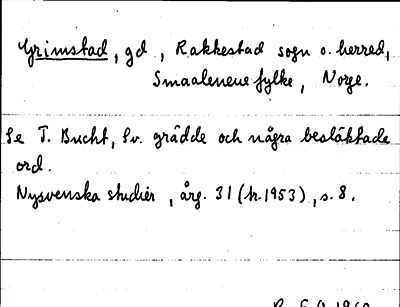 Grimstad, gd, Rakkestad sogn o. herred,
Smaalenene fylke, Norge.
Se T. Bucht, Sv. grädde och några besläktade
ord.
Nysvenska studier, årg. 31 (tr. 1953), s. 8.